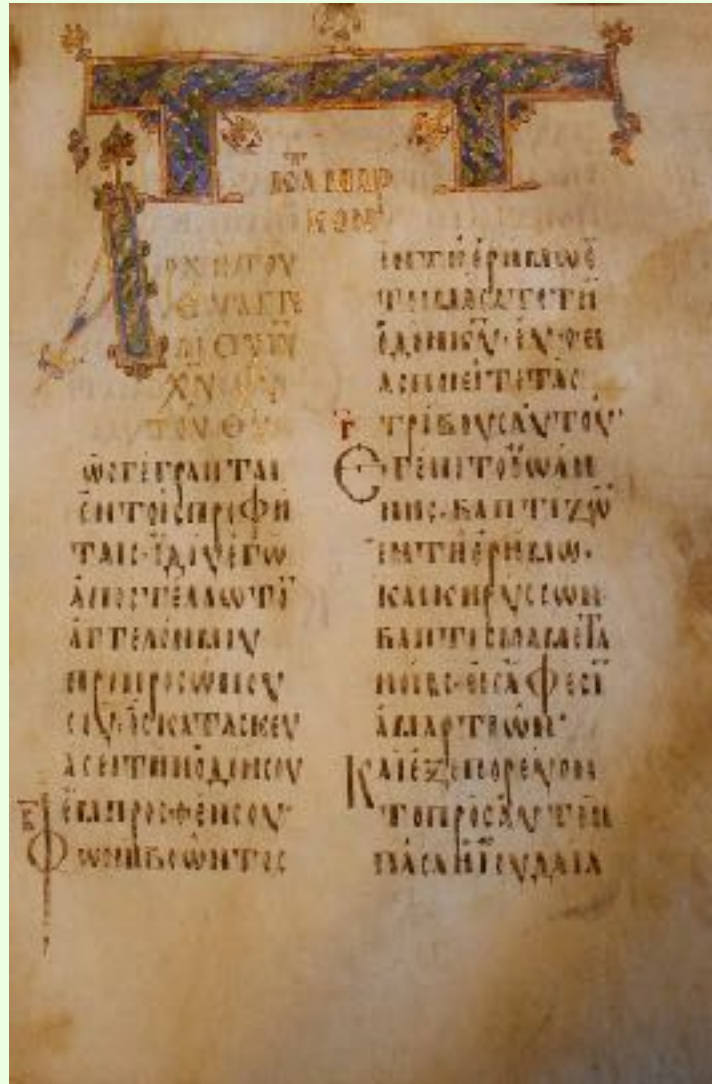 ΚΑΤΑ ΜΑΡ
ΚΟΝ
ΑΡΧΗ ΤΟΥ
ΕΥΑΓΓΕ
ΛΙΟΥ ΙΥ
ΧΥ ΥΙΟΥ
ΤΟΥ ΘΥ
ΩΣ ΓΕΓΡΑΠΤΑΙ
ΕΝ ΤΟΙΣ ΠΡΟΦΗ
ΤΑΙΣ· ΙΔΟΥ ΕΓΩ
ΑΠΟΣΤΕΛΛΩ ΤΟ̄
ΑΓΓΕΛΟΝ ΜΟΥ
ΠΡΟ ΠΡΟΣΩΠΟΥ
ΣΟΥ· ΟΣ ΚΑΤΑΣΚΕΥ
ΑΣΕΙ ΤΗΝ ΟΔΟΝ ΣΟΥ
ΕΜΠΡΟΣΘΕΝ ΣΟΥ·
ΦΩΝΗ ΒΟΩΝΤΟΣ
ΕΝ ΤΗ ΕΡΗΜΩ Ε
ΤΟΙΜΑΣΑΤΕ ΤΗ̄
ΟΔΟΝ ΚΥ· ΕΥΘΕΙ
ΑΣ ΠΟΙΕΙΤΕ ΤΑΣ
ΤΡΙΒΟΥΣ ΑΥΤΟΥ·
ΕΓΕΝΕΤΟ ΙΩΑΝ
ΝΗΣ· ΒΑΠΤΙΖΩ̄
ΕΝ ΤΗ ΕΡΗΜΩ·
ΚΑΙ ΚΗΡΥΣΣΩΝ
ΒΑΠΤΙΣΜΑ ΜΕΤΑ
ΝΟΙΑΣ· ΕΙΣ ΑΦΕΣῙ
ΑΜΑΡΤΙΩΝ·
ΚΑΙ ΕΞΕΠΟΡΕΥΟΝ
ΤΟ ΠΡΟΣ ΑΥΤΟΝ
ΠΑΣΑ Η ΙΟΥΔΑΙΑ